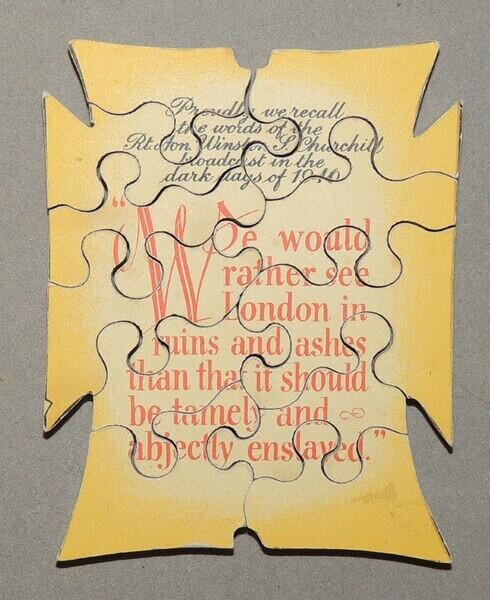 Proudly we recall
the words of the
Rt. Hon. Winston S. Churchill
broadcast in the
dark days of 1940
“We would
rather see
London in
ruins and ashes
than that it should
be tamely and
abjectly enslaved.”